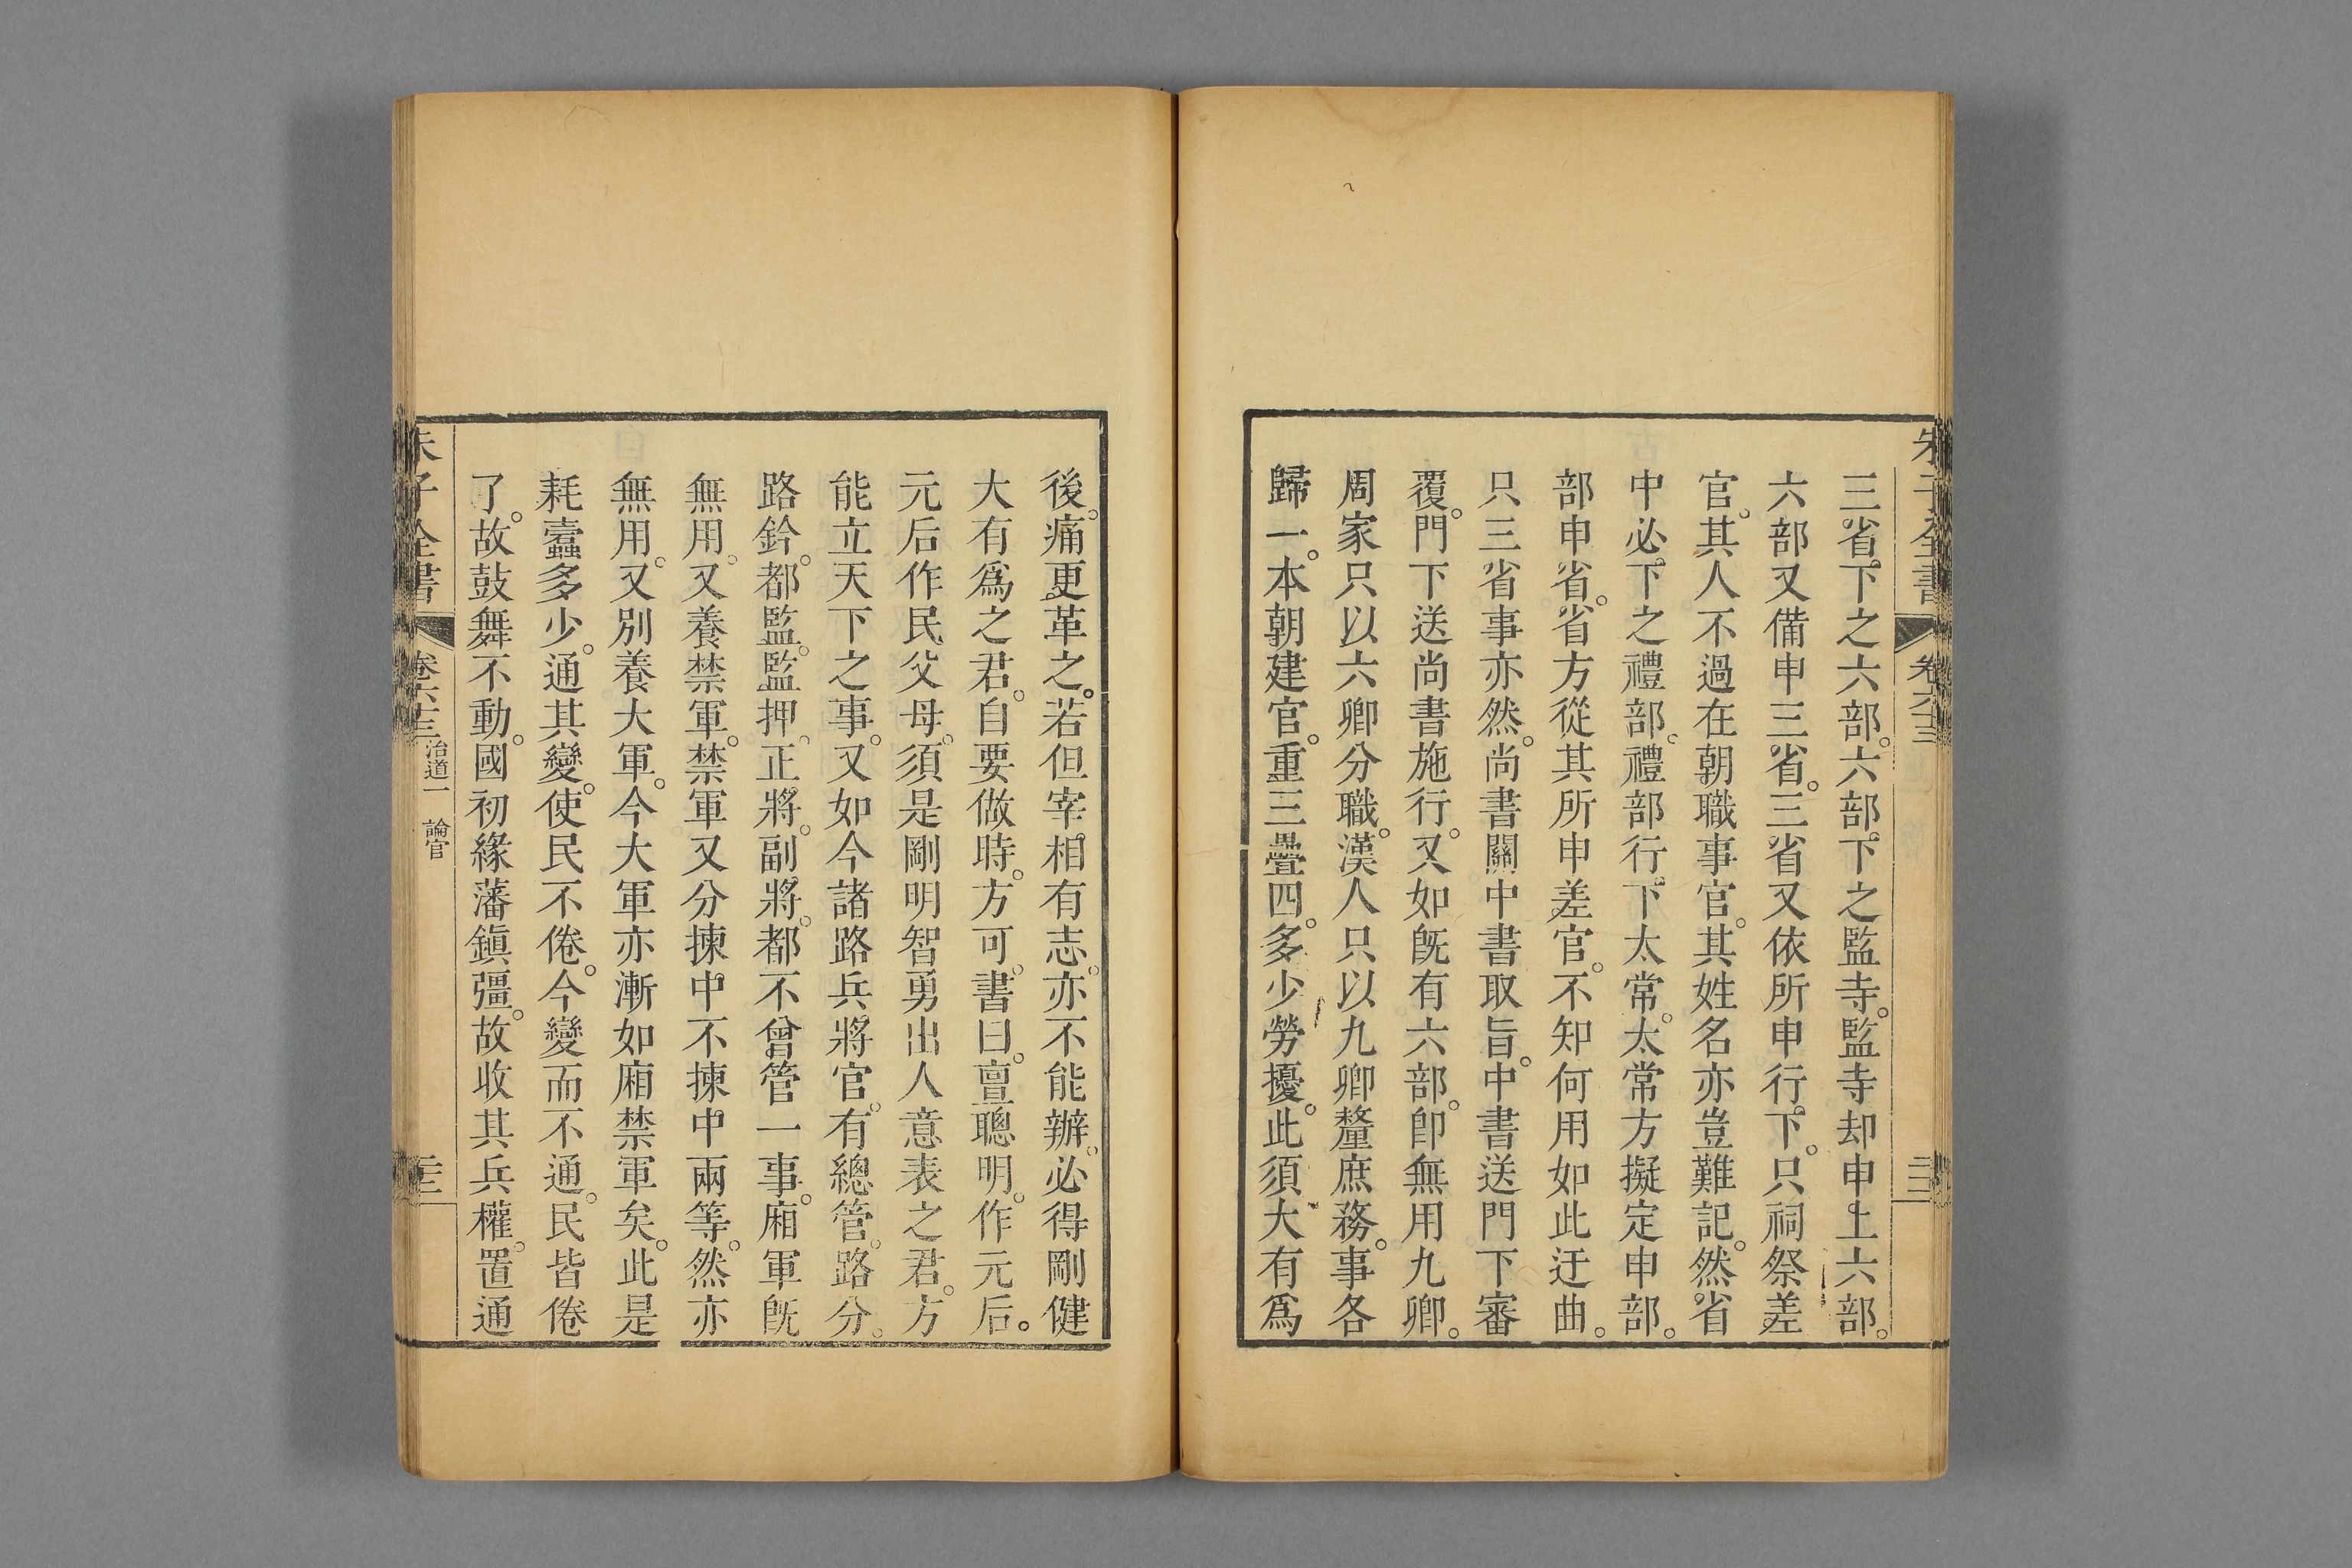 朱子全書 卷六十三
三省。下之六部。六部。下之監寺。監寺却申上六部。
六部又備申三省。三省又依所申行下。只祠祭差
官。其人不過在朝職事官。其姓名亦豈難記。然省
中必下之禮部。禮部行下太常。太常方擬定申部。
部申省。省方從其所申差官。不知何用如此迂曲。
只三省事亦然。尚書關中書取旨。中書送門下審
覆。門下送尚書施行。又如旣有六部。卽無用九卿。
周家只以六卿分職。漢人只以九卿釐庶務。事各
歸一。本朝建官。重三疊四。多少勞擾。此須大有爲
後。痛更革之。若但宰相有志。亦不能辦。必得剛健
大有爲之君。自要做時。方可。書曰。亶聰明。作元后。
元后作民父母。須是剛明智勇出人意表之君。方
能立天下之事。又如今諸路兵將官。有總管。路分。
路鈐。都監。監押。正將。副將。都不曾管一事。廂軍旣
無用。又養禁軍。禁軍又分揀中不揀中兩等。然亦
無用。又別養大軍。今大軍亦漸如廂禁軍矣。此是
耗蠹多少。通其變。使民不倦。今變而不通。民皆倦
了。故鼓舞不動。國初緣藩鎭彊。故收其兵權。置通
朱子全書 卷六十三 治道一 論官